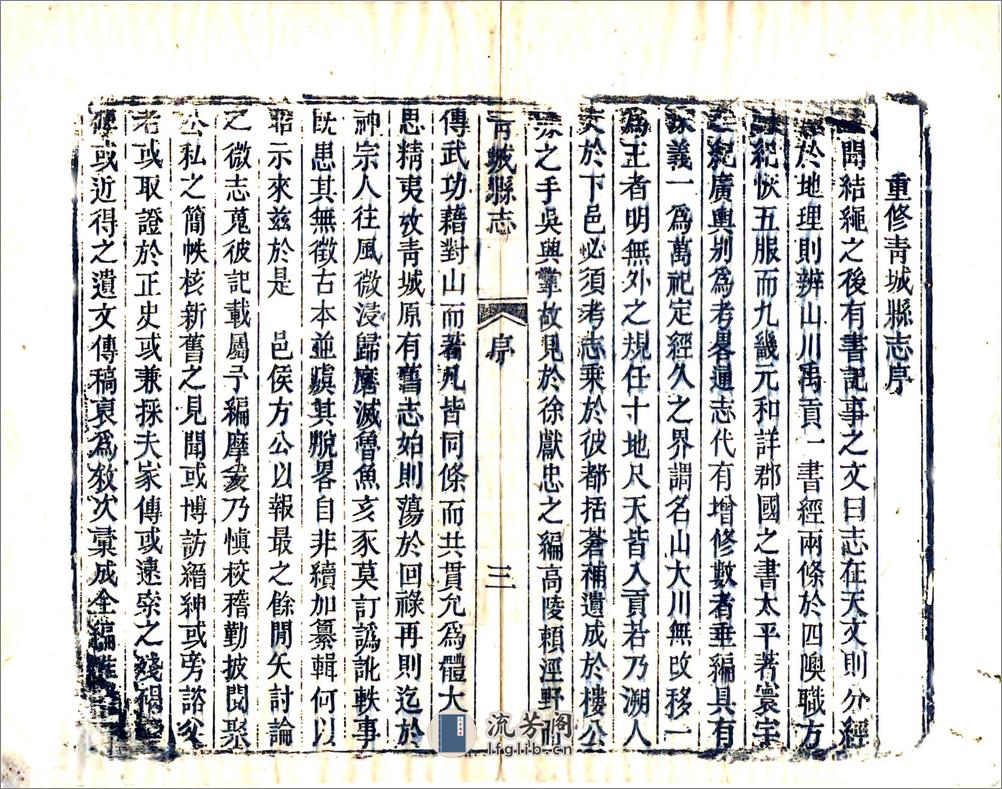 重修青城縣志序
聞結繩之後有書記事之文曰志在天文則分經
於地理則辨山川禹貢一書經兩條於四隩職方
紀恢五服而九畿元和詳郡國之書太平著寰宇
之紀廣輿别為考畧通志代有增修數者垂編具有
深義一為萬祀定經久之界謂名山大川無改移一
為王者明無外之規任十地尺天皆入貢若乃溯人
文於下邑必須考志乘於彼都括蒼補遺成於樓公
之手吳興掌故見於徐獻忠之編高陵賴涇野而
青城縣志 序 三
傳武功藉對山而著凡皆同條而共貫允為體大
思精夷攷青城原有舊志始則蕩於回祿再則迄於
神宗人往風微浸歸磨滅魯魚亥豕莫訂譌訛軼事
旣患其無徵古本並虞其脫畧自非續加纂輯何以
昭示來兹於是 邑侯方公以報最之餘閒矢討論
之微志蒐彼記載屬予編摩爰乃愼校稽勤披閱聚
公私之簡帙核新舊之見聞或博訪縉紳或旁諮父
老或取證於正史或兼採夫家傳或遠索之殘碣
碑或近得之遺文傳稿裒為敘次彙成全編雖
流芳阁
lfglib.cn